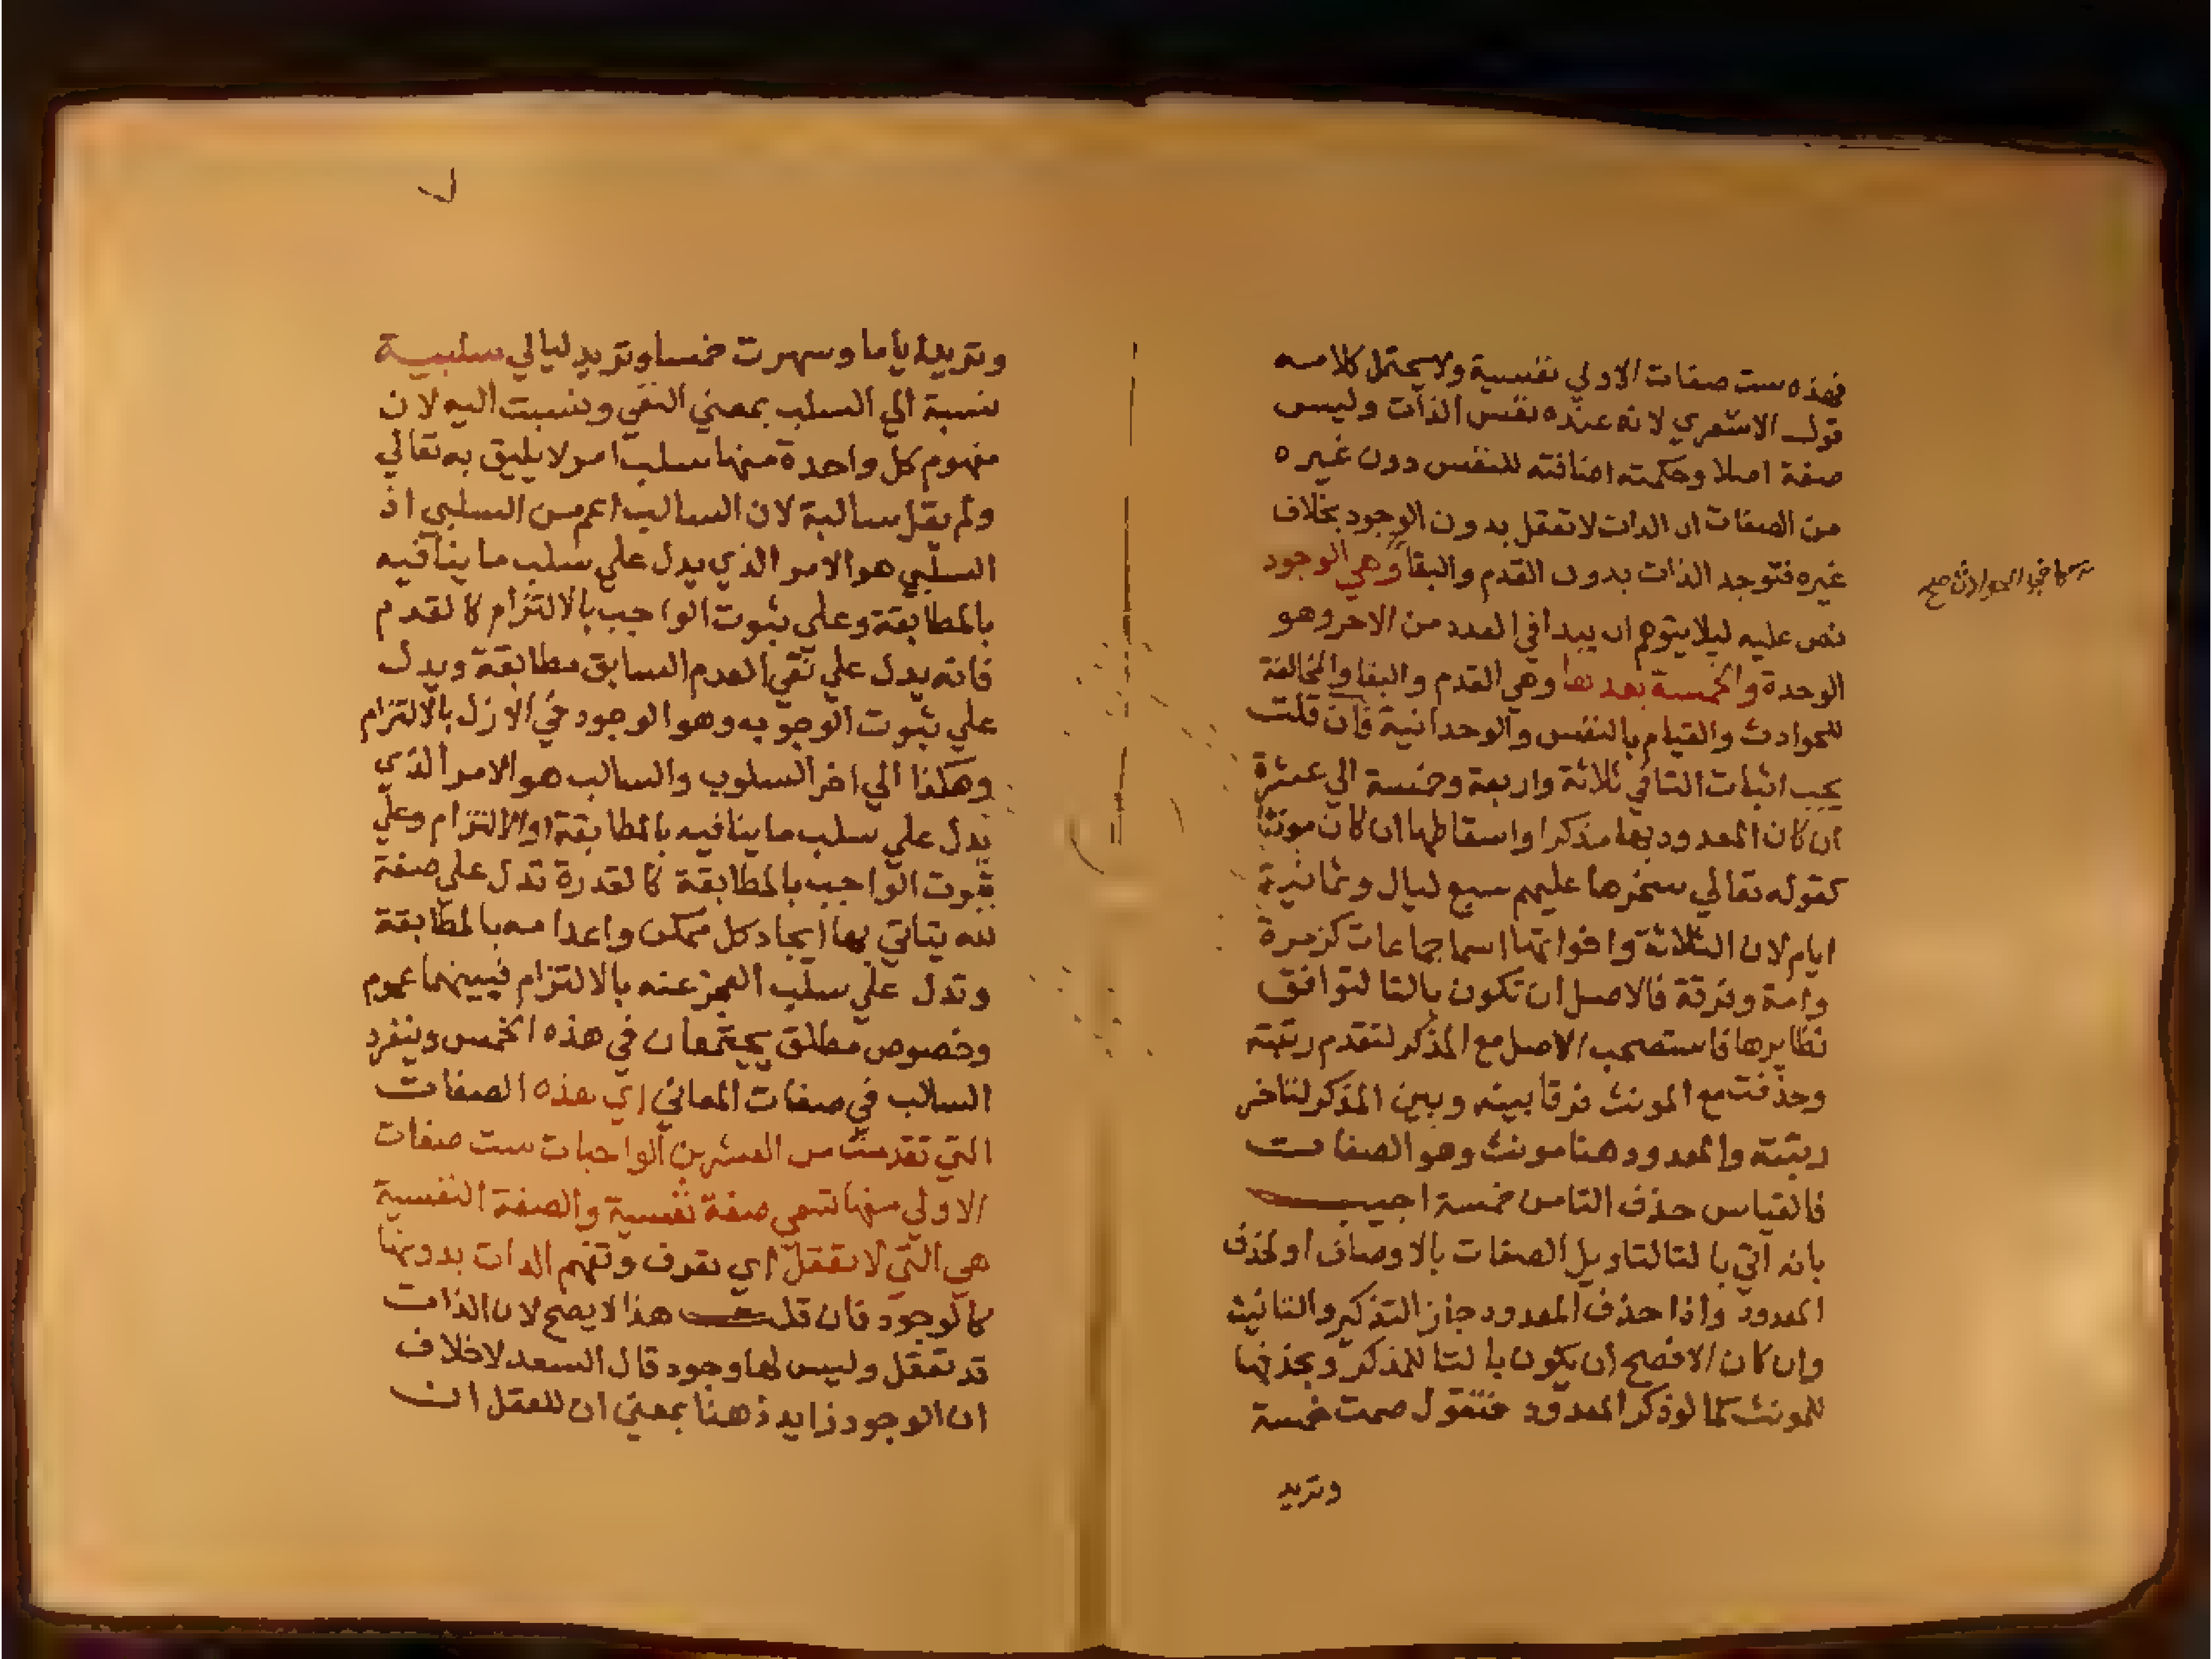 فهذه ست صفات الاولي نفسية ولا يحتمل كلامه
قول الاشعري لانه عنده نفس الذات وليس
صفة اصلا وحكمته اضافته للنفس دون غيره
من الصفات ان الذات لا تعقل بدون الوجود بخلاف
غيره فتوجد الذات بدون القدم والبقا وهي الوجود
كما في الحوادث صح
نص عليه ليلا يتوهم ان يبدا في العدد من الاخر وهو
الوحدة والخمسة بعدها وهي القدم والبقا والمخالفة
للحوادث والقيام بالنفس والوحدانية فان قلت
يجب اثبات التا في ثلاثة واربعة وخمسة الي عشرة
ان كان المعدود بها مذكرا واسقاطها ان كان مونثا
كقوله تعالي سخرها عليهم سبع ليال وثمانية
ايام لان الثلاثة واخواتها اسما جماعات كزمرة
وامة وفرقة فالاصل ان تكون بالتا لتوافق
نظايرها فاستصحب الاصل مع المذكر لتقدم رتبته
وحذفت مع المونث فرقا بينه وبين المذكر لتاخر
رتبته والمعدود هنا مونث وهو الصفات
فالقياس حذف التا من خمسة اجيب
بانه اتي بالتا لتاويل الصفات بالاوصاف او لحذف
المعدود واذا حذف المعدود جاز التذكير والتانيث
وان كان الافصح ان يكون بالتا للمذكر وبحذفها
للمونث كما لو ذكر المعدود فتقول صمت خمسة
وتريد
وتريد اياما وسهرت خمسا وتريد ليالي سلبية
نسبة الي السلب بمعني النفي ونسبت اليه لان
مفهوم كل واحدة منها سلب امر لا يليق به تعالي
ولم يقل سالبة لان السالب اعم من السلبي اذ
السلبي هو الامر الذي يدل علي سلب ما ينافيه
بالمطابقة وعلي ثبوت الواجب بالالتزام كالقدم
فانه يدل علي نفي العدم السابق مطابقة ويدل
علي ثبوت الوجوبه وهو الوجود في الازل بالالتزام
وهكذا الي اخر السلوب والسالب هو الامر الذي
يدل علي سلب ما ينافيه بالمطابقة او الالتزام وعلي
ثبوت الواجب بالمطابقة كالقدرة تدل علي صفة
لله يتاتي بها ايجاد كل ممكن واعدامه بالمطابقة
وتدل علي سلب العجز عنه بالالتزام فبينهما عموم
وخصوص مطلق يجتمعان في هذه الخمس وينفرد
السالب في صفات المعاني اي هذه الصفات
التي تقدمت من العشرين الواجبات ست صفات
الاولي منها تسمي صفة نفسية والصفة النفسية
هي التي لا تعقل اي تعرف وتفهم الذات بدونها
كالوجود فان قلت هذا لا يصح لان الذات
قد تعقل وليس لها وجود قال السعد لا خلاف
ان الوجود زايد ذهنا بمعني ان للعقل ان